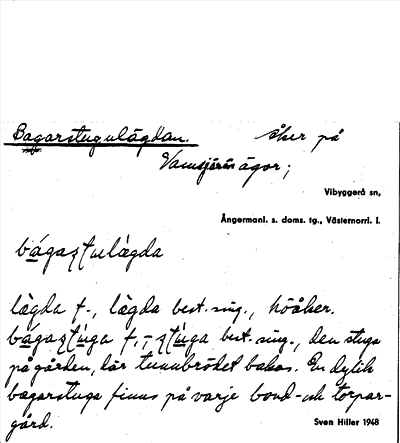 Bagarstugulägdan. åker på
Vamsjöns ägor;
Vibyggerå sn,
Ångermanl. s. doms. tg., Västernorrl. l.
bágaʂʈulàgda
lägda f., lägda best. sing., höåker.
bágaʂʈúga f., -ʂʈúga best. sing., den stuga
på gården, där tunnbrödet bakas. En dylik
bagarstuga finns på varje bond- och torpar-
gård.
Sven Hiller 1948